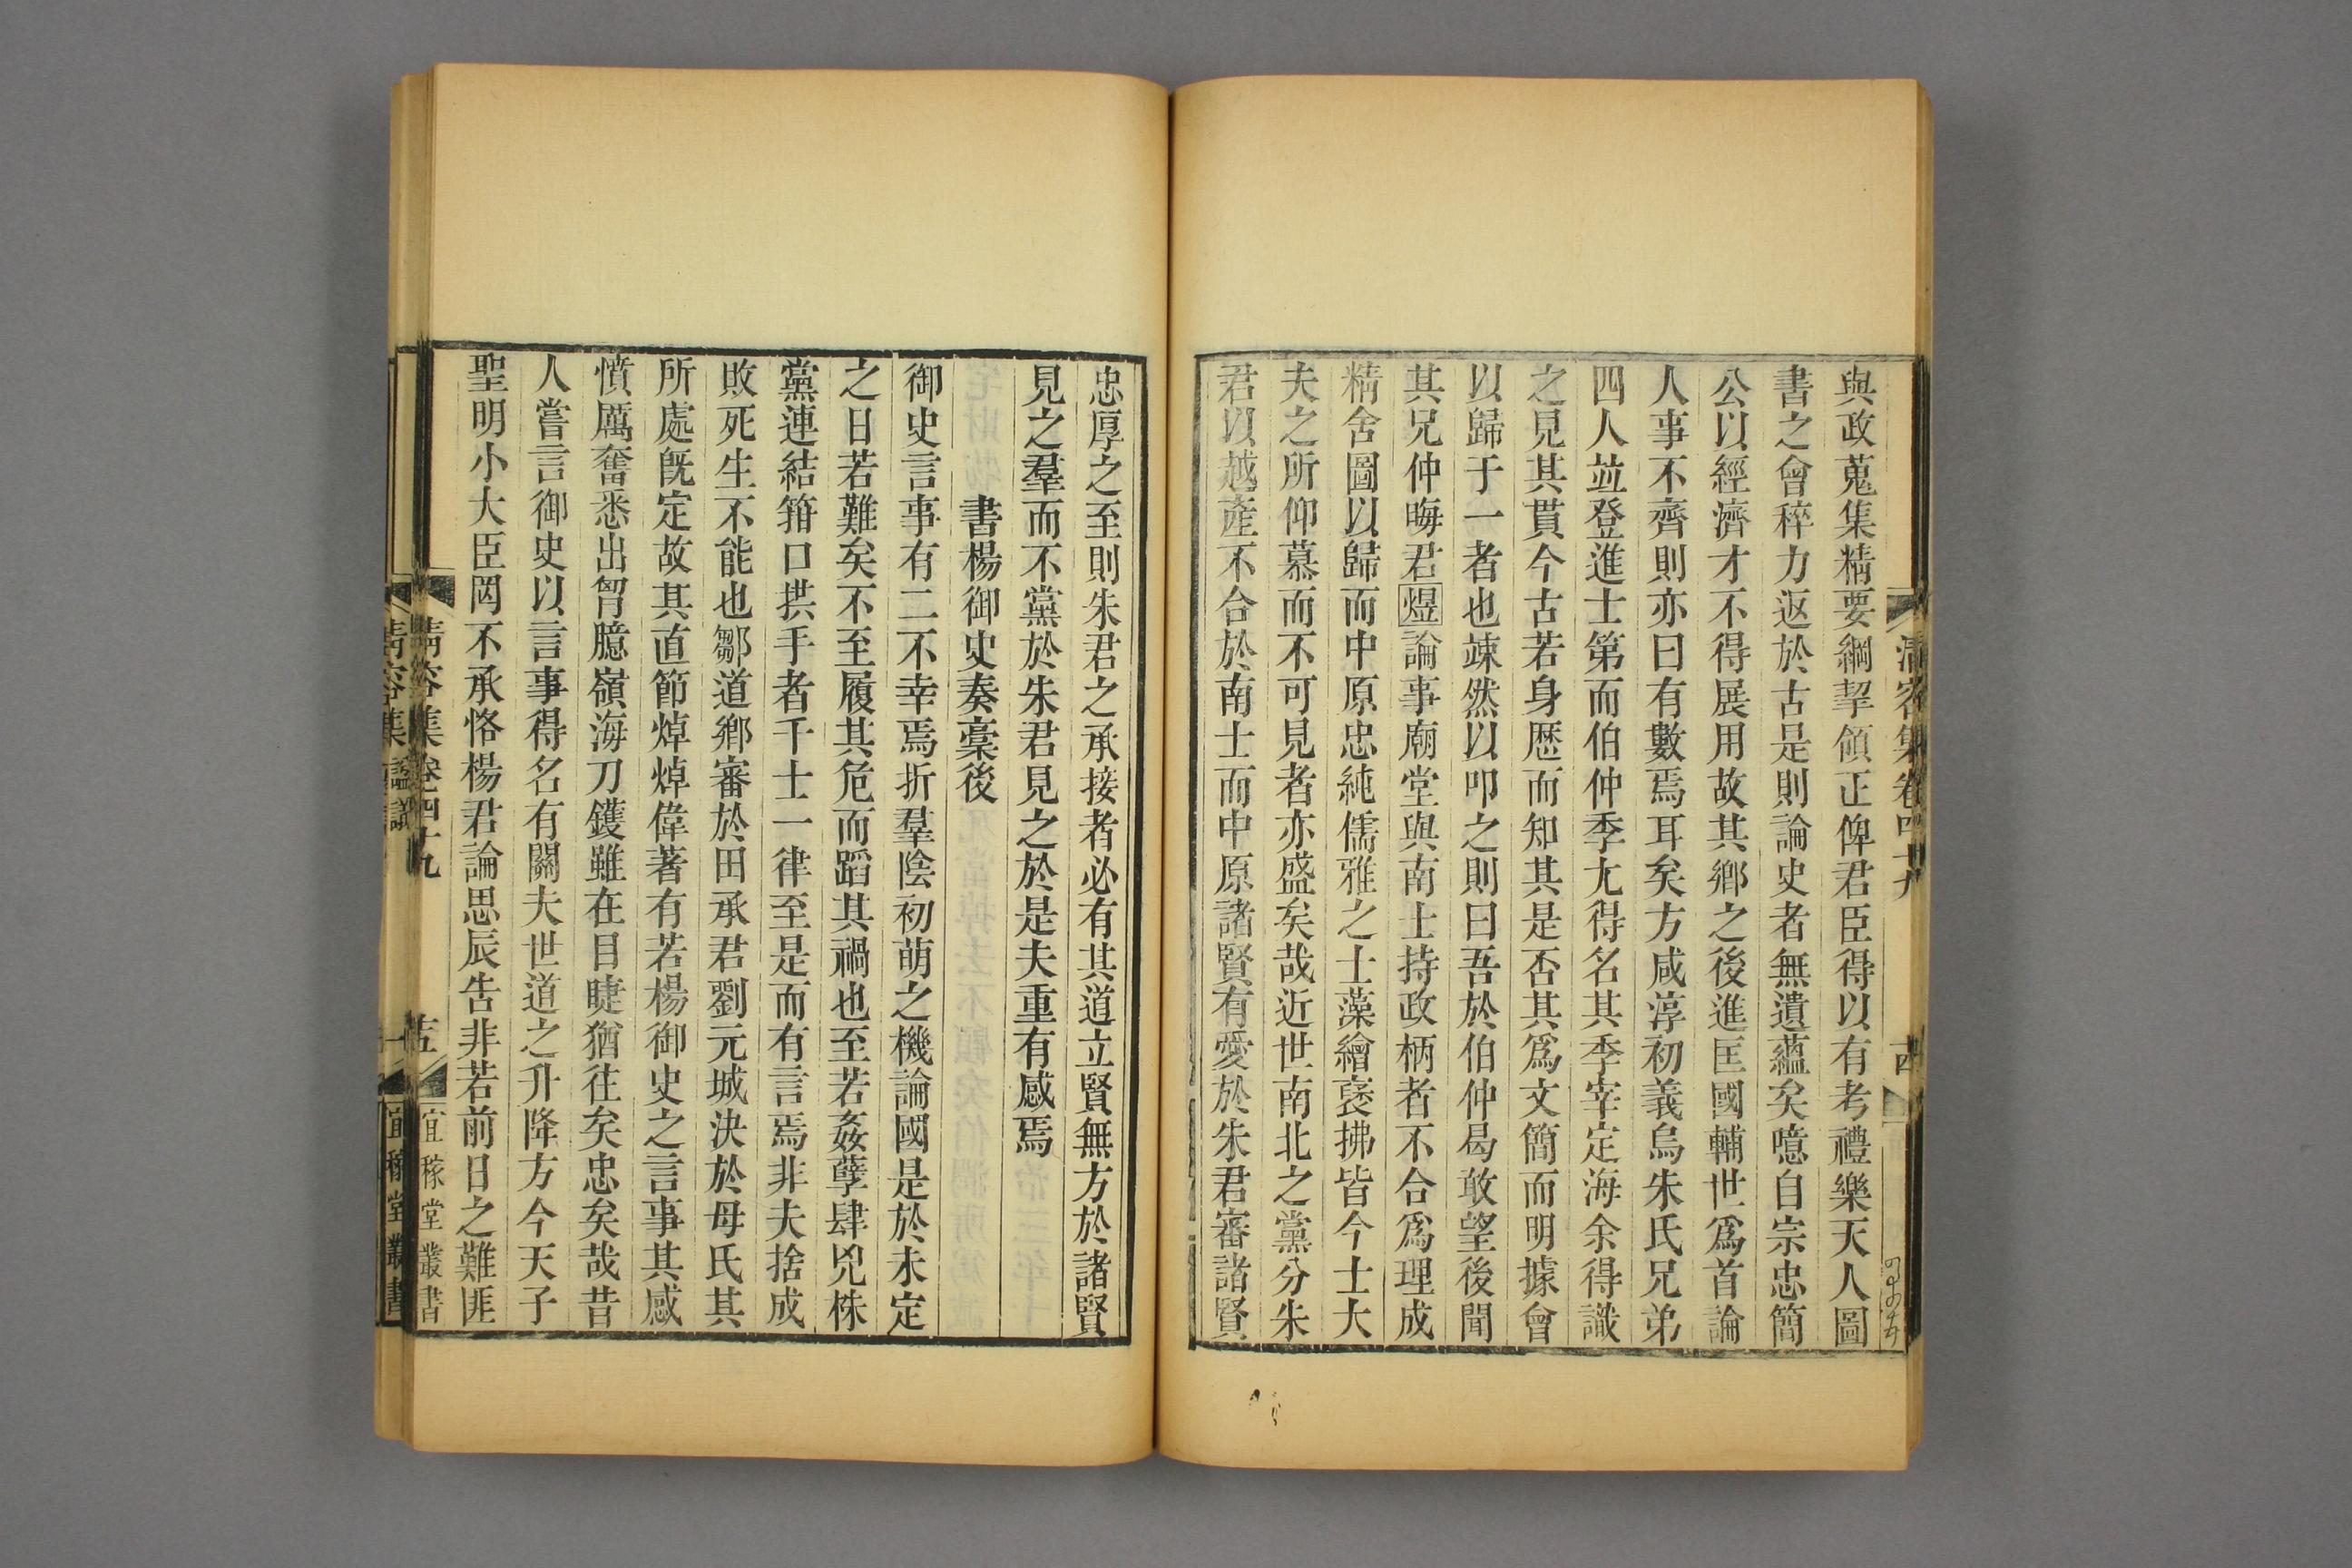 清容集卷四十九
四
與政蒐集精要綱挈領正俾君臣得以有考禮樂天人圖
書之會稡力返於古是則論史者無遺蘊矣噫自宗忠簡
公以經濟才不得展用故其鄉之後進匡國輔世爲首論
人事不齊則亦曰有數焉耳矣方咸淳初義烏朱氏兄弟
四人竝登進士第而伯仲季尤得名其季宰定海余得識
之見其貫今古若身歷而知其是否其爲文簡而明據會
以歸于一者也竦然以叩之則曰吾於伯仲曷敢望後聞
其兄仲晦君煜論事廟堂與南士持政柄者不合爲理成
精舍圖以歸而中原忠純儒雅之士藻繪褒拂皆今士大
夫之所仰慕而不可見者亦盛矣哉近世南北之黨分朱
君以越產不合於南士而中原諸賢有愛於朱君審諸賢
忠厚之至則朱君之承接者必有其道立賢無方於諸賢
見之羣而不黨於朱君見之於是夫重有感焉
書楊御史奏稾後
御史言事有二不幸焉折羣陰初萌之機論國是於未定
之日若難矣不至履其危而蹈其禍也至若姦孽肆兇株
黨連結箝口拱手者千士一律至是而有言焉非夫捨成
敗死生不能也鄒道鄉審於田承君劉元城決於母氏其
所處旣定故其直節焯焯偉著有若楊御史之言事其感
憤厲奮悉出胷臆嶺海刀鑊雖在目睫猶往矣忠矣哉昔
人嘗言御史以言事得名有關夫世道之升降方今天子
聖明小大臣罔不承恪楊君論思辰告非若前日之難匪
清容集卷四十九
五
宜稼堂叢書
清容集
宜稼堂叢書